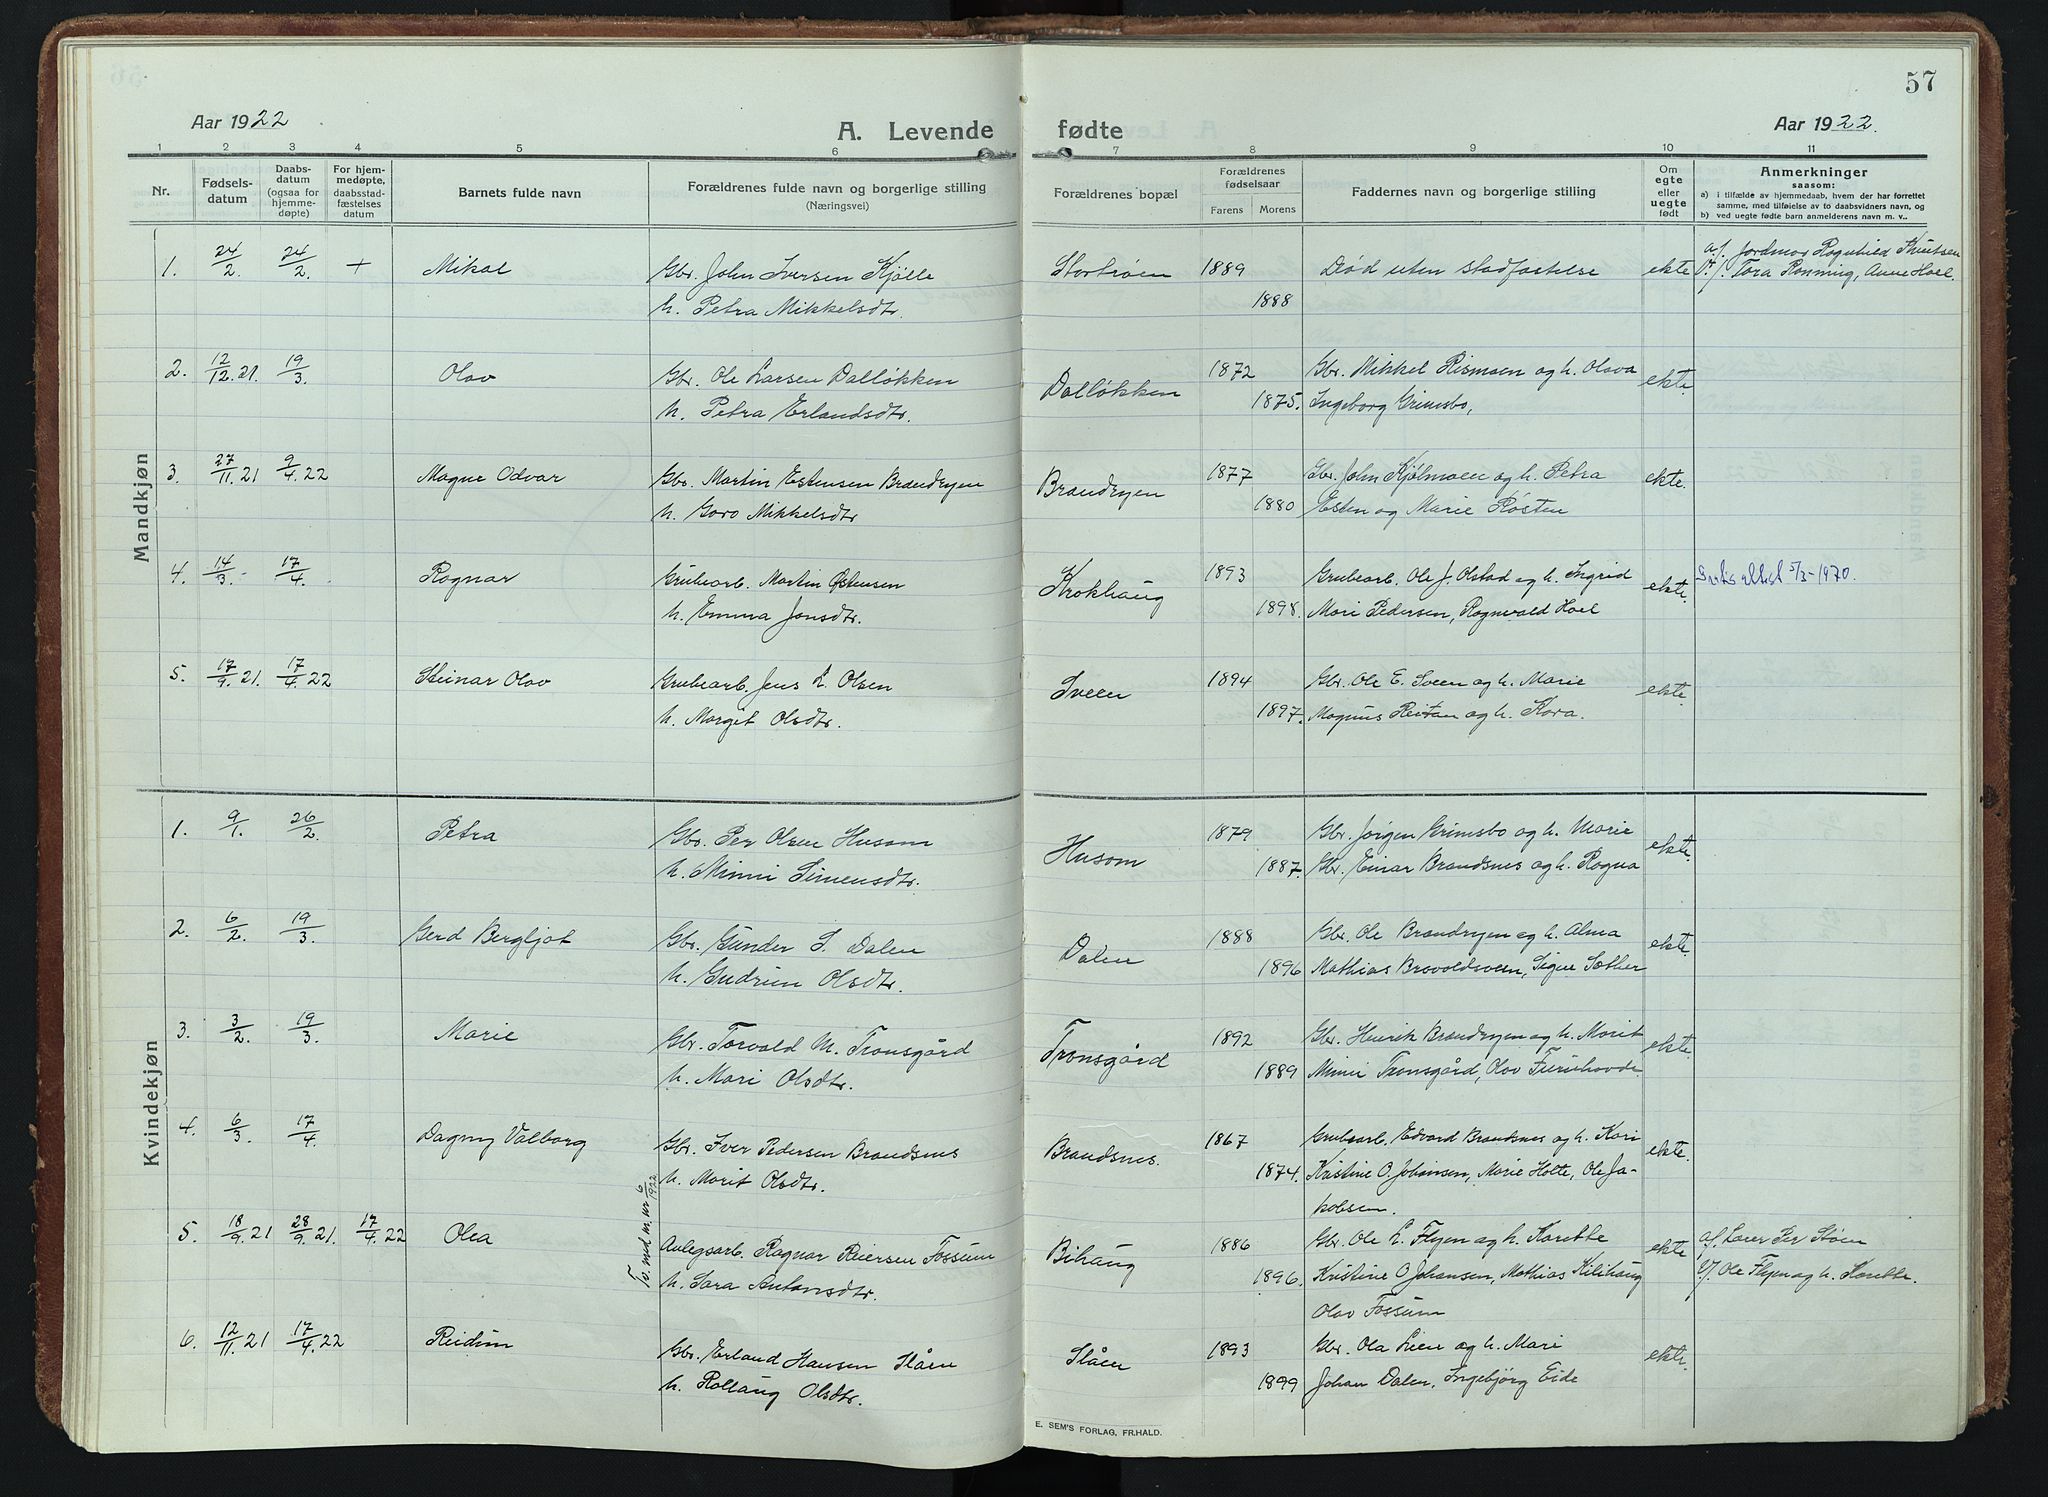 57
Aar 1922
A. Levende fødte
Aar 1922.
1 2 3 4 5 6 7 8 9 10 11
Nr.
Fødsels-
datum
Daabs-
datum
(ogsaa for
hjemme-
døpte)
For hjem-
medøpte,
daabsstad-
fæstelses
datum
Barnets fulde navn
Forældrenes fulde navn og borgerlige stilling
(Næringsvei)
Forældrenes bopæl
Forældrenes
fødselsaar
Farens Morens
Faddernes navn og borgerlige stilling
Om
egte
eller
uegte
født
Anmerkninger
saasom:
a) i tilfælde av hjemmedaab, hvem der har forrettet
samme, med tilføielse av to daabsvidners navn, og
b) ved uegte fødte barn anmelderens navn m. v..
Mandkjøn
1. 24/2. 24/2. + Mikal Gbr. John Iversen Kjølle Stortrøen 1889 Død uten stadfæstelse ekte a/. Jordmor Ragnhild Knutsen
v/. Tora Rønning, Anne Hoel.
h. Petra Mikkelsdtr. 1888
2. 12/12.21. 19/3. Olav Gbr. Ole Larsen Dalløkken Dalløkken 1872 Gbr. Mikkel Rismoen og h. Olava ekte.
h. Petra Erlandsdtr. 1875. Ingeborg Grimsbo,
3. 27/11.21 9/4.22 Magne Odvar Gbr. Martin Estensen Brandryen Brandryen 1877 Gbr. John Kjølmoen og h. Petra ekte.
h. Goro Mikkelsdtr 1880 Esten og Marie Røsten
4. 14/3. 17/4. Ragnar Grubearb. Martin Østensen Krokhaug 1893 Grubearb. Ole J. Olstad og h. Ingrid ekte. 5/3-1970.
h. Emma Jonsdtr. 1898. Mari Pedersen, Ragnvald Hoel
5. 17/9.21. 17/4.22 Steinar Olav Grubearb. Jens L. Olsen Sveen 1894 Gbr. Ole E. Sveen og h. Marie ekte.
h. Margit Olsdtr. 1897. Magnus Reitan og h. Kara.
Kvindekjøn
1. 9/1. 26/2. Petra Gbr. Per Olsen Husom Husom 1879 Gbr. Jørgen Grimsbo og h. Marie ekte.
h. Minni Simensdtr. 1887. Gbr. Einar Brandsnes og h. Ragna
2. 6/2. 19/3. Gerd Bergljot Gbr. Gunder S. Dalen Dalen 1888 Gbr. Ole Brandryen og h. Alma ekte.
h. Gudrun Olsdtr. 1896 Mathias Bravoldsveen, Signe Sæther
3. 3/2. 19/3. Marie Gbr. Torvald M. Tronsgård Tronsgård 1892 Gbr. Henrik Brandryen og h. Marit ekte.
h. Mari Olsdtr. 1889 Minni Tronsgård, Olav Furuhovde.
4. 6/3. 17/4. Dagny Valborg Gbr. Iver Pedersen Brandsnes Brandsnes. 1867 Grubearb. Edvard Brandsnes og h. Kari ekte.
h. Marit Olsdtr. 1874. Kristine O. Johansen, Marie Holte, Ole Ja-
kobsen.
Tv. med m. nr 6/1922
5. 18/9.21 28/9.21. 17/4.22 Olea Anlegsarb. Ragnar Reiersen Fossum Bihaug 1886 Gbr. Ole L. Flyen og h. Karette ekte a/. Lærer Per Støen
h. Sara Antonsdtr. 1896. Kristine O. Johansen, Mathias Kilihaug v/. Ole Flyen og h. Karette.
Olav Fossum
6. 12/11.21 17/4.22 Reidun Gbr. Erland Hansen Slåen Slåen 1893 Gbr. Ola Lien og h. Mari ekte.
h. Rollaug Olsdtr. 1899 Johan Dalen, Ingebjørg Eide
E. SEM'S FORLAG, FR.HALD.